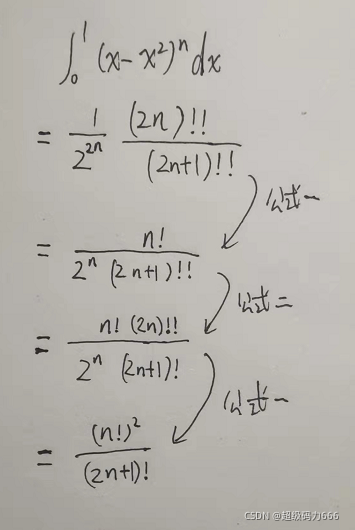 ∫₀¹ (x-x²)ⁿ dx
= 1/2²ⁿ (2n)!!/(2n+1)!!
公式一
= n!/(2ⁿ (2n+1)!!)
公式二
= n! (2n)!!/(2ⁿ (2n+1)!)
公式一
= (n!)²/(2n+1)!
CSDN @超级码力666